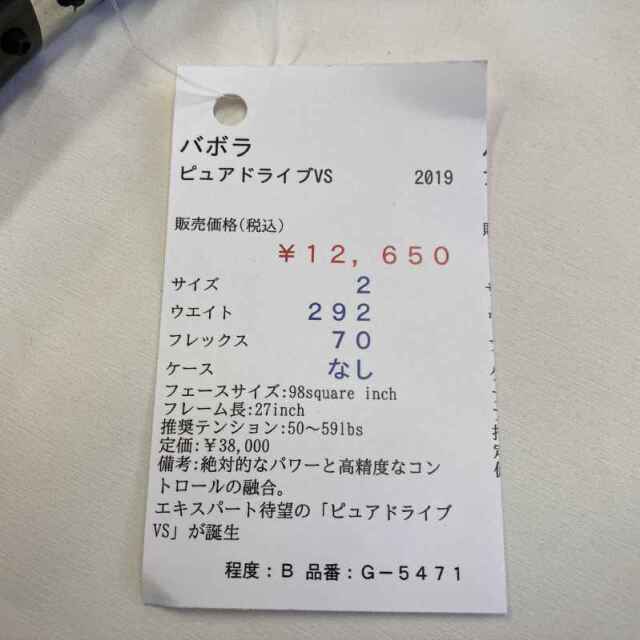 バボラ
ピュアドライブVS 2019
販売価格(税込)
¥12,650
サイズ 2
ウエイト 292
フレックス 70
ケース なし
フェースサイズ:98square inch
フレーム長:27inch
推奨テンション:50～59lbs
定価:¥38,000
備考:絶対的なパワーと高精度なコン
トロールの融合。
エキスパート待望の「ピュアドライブ
VS」が誕生
程度:B 品番:G－5471